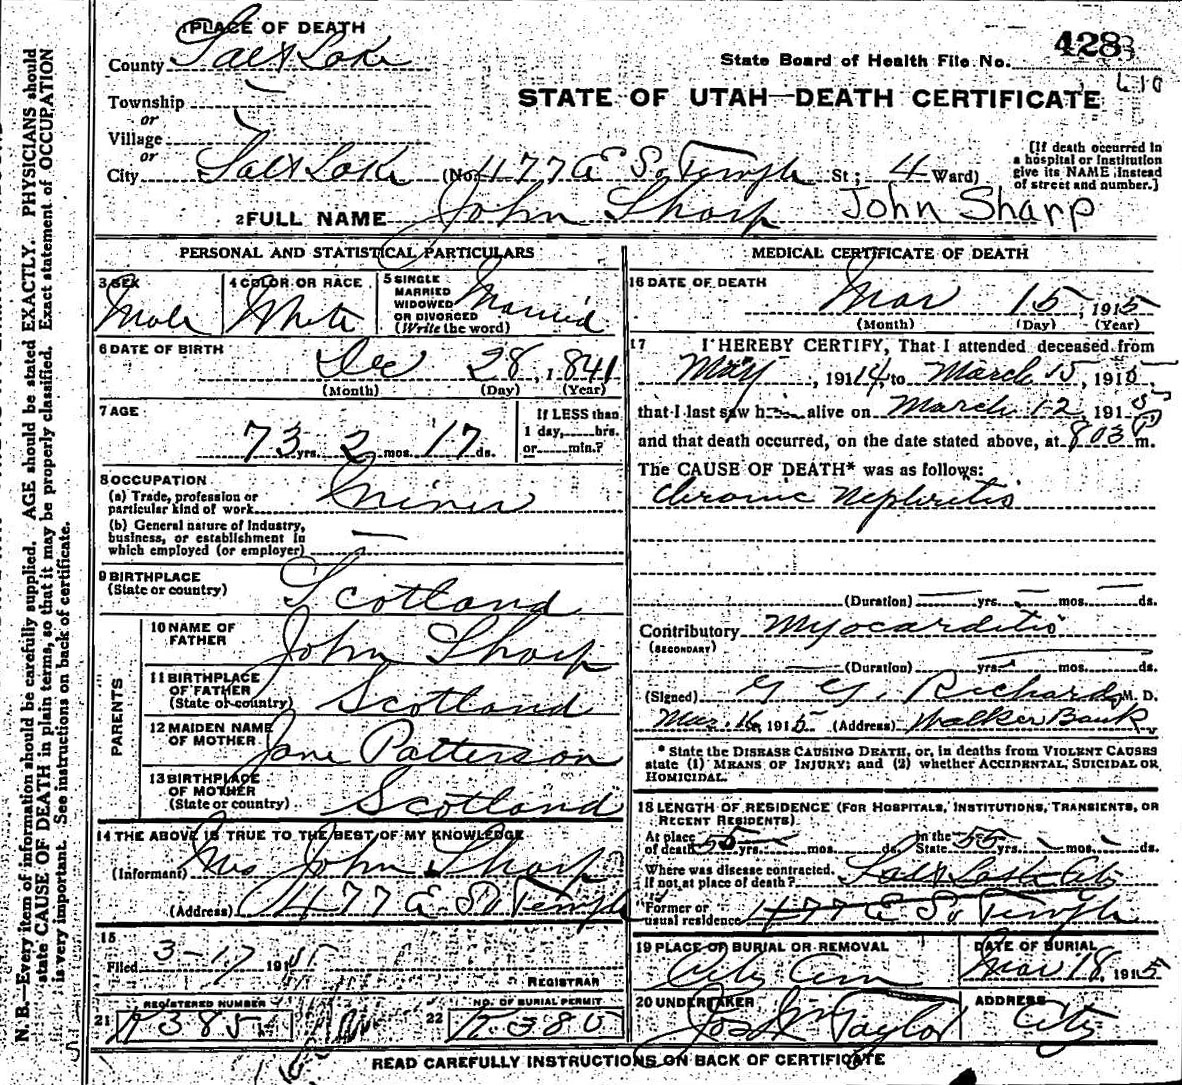 1 PLACE OF DEATH
County Salt Lake
Township
or
Village
or
City Salt Lake (No. 477 E So Temple St; 4 Ward)
428
State Board of Health File No.
STATE OF UTAH—DEATH CERTIFICATE
610
[If death occurred in
a hospital or institution
give its NAME instead
of street and number.]
2 FULL NAME John Sharp John Sharp
PERSONAL AND STATISTICAL PARTICULARS
3 SEX
Male
4 COLOR OR RACE
White
5 SINGLE
MARRIED
WIDOWED
OR DIVORCED
(Write the word)
Married
6 DATE OF BIRTH
Dec 28, 1841
(Month) (Day) (Year)
7 AGE
73 yrs. 2 mos. 17 ds.
If LESS than
1 day, hrs.
or min.?
8 OCCUPATION
(a) Trade, profession or
particular kind of work Miner
(b) General nature of Industry,
business, or establishment in
which employed (or employer)
9 BIRTHPLACE
(State or country) Scotland
PARENTS
10 NAME OF
FATHER John Sharp
11 BIRTHPLACE
OF FATHER
(State or country) Scotland
12 MAIDEN NAME
OF MOTHER Jane Patterson
13 BIRTHPLACE
OF MOTHER
(State or country) Scotland
14 THE ABOVE IS TRUE TO THE BEST OF MY KNOWLEDGE
(Informant) Mrs John Sharp
(Address) 477 E So Temple
15
Filed 3-17 1915
REGISTRAR
REGISTERED NUMBER
21 K385
NO. OF BURIAL PERMIT
22 K385
MEDICAL CERTIFICATE OF DEATH
16 DATE OF DEATH
Mar 15, 1915
(Month) (Day) (Year)
17 I HEREBY CERTIFY, That I attended deceased from
May, 1914, to March 15, 1915
that I last saw h alive on March 12, 1915
and that death occurred, on the date stated above, at 803 P m.
The CAUSE OF DEATH* was as follows:
Chronic Nephritis
(Duration) yrs. mos. ds.
Contributory Myocarditis
(SECONDARY)
(Duration) yrs. mos. ds.
(Signed) G G. Richards M. D.
Mar. 16, 1915 (Address) Walker Bank
* State the DISEASE CAUSING DEATH, or, in deaths from VIOLENT CAUSES
state (1) MEANS OF INJURY; and (2) whether ACCIDENTAL, SUICIDAL OR
HOMICIDAL.
18 LENGTH OF RESIDENCE (FOR HOSPITALS, INSTITUTIONS, TRANSIENTS, OR
RECENT RESIDENTS)
At place
of death 55 yrs. mos. ds. In the
State 55 yrs. mos. ds.
Where was disease contracted,
If not at place of death? Salt Lake City
Former or
usual residence 477 E So Temple
19 PLACE OF BURIAL OR REMOVAL
City Cem
DATE OF BURIAL
Mar 18, 1915
20 UNDERTAKER
Jos Wm Taylor
ADDRESS
City
READ CAREFULLY INSTRUCTIONS ON BACK OF CERTIFICATE
N. B.—Every item of information should be carefully supplied. AGE should be stated EXACTLY. PHYSICIANS should
state CAUSE OF DEATH in plain terms, so that it may be properly classified. Exact statement of OCCUPATION
is very important. See instructions on back of certificate.